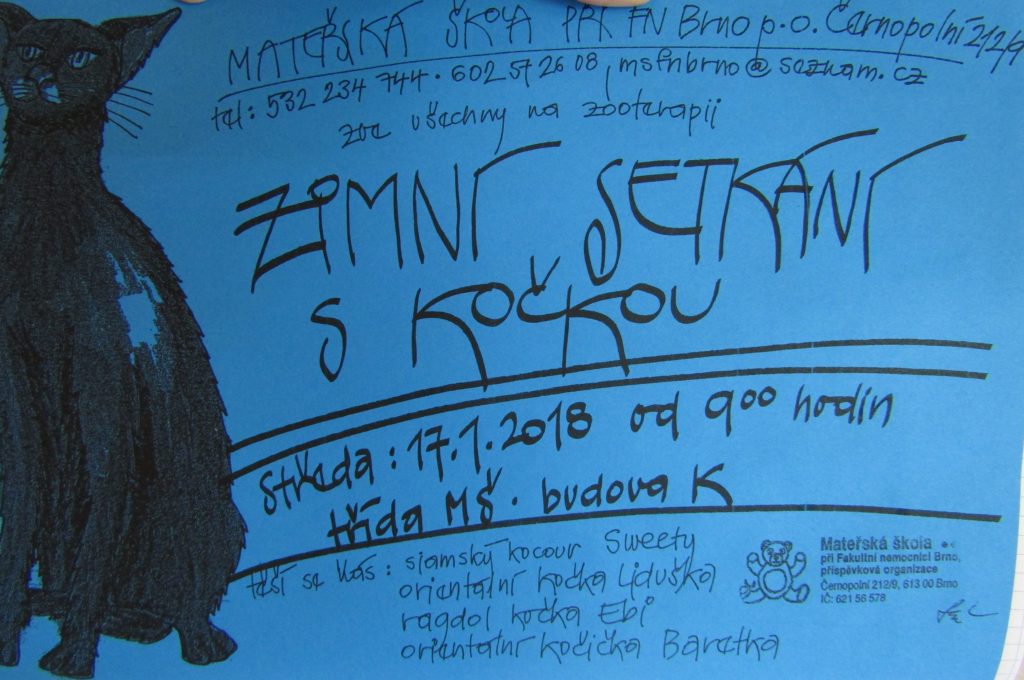 MATEŘSKÁ ŠKOLA PŘI FN Brno p.o. Černopolní 212/9
tel: 532 234 744 · 602 57 26 08, msfnbrno@seznam.cz
zve všechny na zooterapii
ZIMNÍ SETKÁNÍ
S KOČKOU
středa: 17.1.2018 od 9⁰⁰ hodin
třída MŠ · budova K
těší se Vás: siamský kocour Sweety
orientalní kočka Liduška
ragdol kočka Ebi
orientalní kočička Baretka
Mateřská škola
při Fakultní nemocnici Brno,
příspěvková organizace
Černopolní 212/9, 613 00 Brno
IČ: 621 56 578